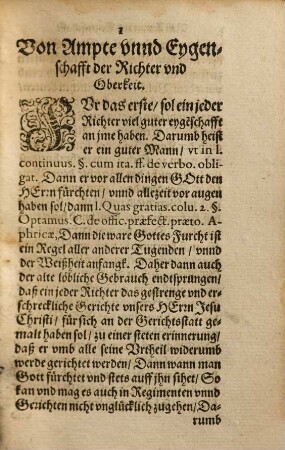 1
Von Ampte vnnd Eygen-
schafft der Richter vnd
Oberkeit.
FVr das erste / sol ein jeder
Richter viel guter eygẽschafft
an jme haben. Darumb heist
er ein guter Mann / vt in l.
continuus. §. cum ita. ff. de verbo. obli
gat. Dann er vor allen dingen GOtt den
HErrn fürchten / vnnd allezeit vor augen
haben sol / dann l. Quas gratias. colu. 2. §.
Optamus. C. de offic. præfect. præto. A-
phricæ, Dann die ware Gottes Furcht ist
ein Regel aller anderer Tugenden / vnnd
der Weißheit anfangk. Daher dann auch
der alte löbliche Gebrauch endtsprungen /
daß ein jeder Richter das gestrenge vnd er-
schreckliche Gerichte vnsers HErrn Jesu
Christi / für sich an der Gerichtsstatt ge-
malt haben sol / zu einer steten erinnerung /
daß er vmb alle seine Vrtheil widerumb
werde gerichtet werden / Dann wann man
Gott fürchtet vnd stets auff jhn sihet / So
kan vnd mag es auch in Regimenten vnnd
Gerichten nicht vnglücklich zugehen / Da-
rumb